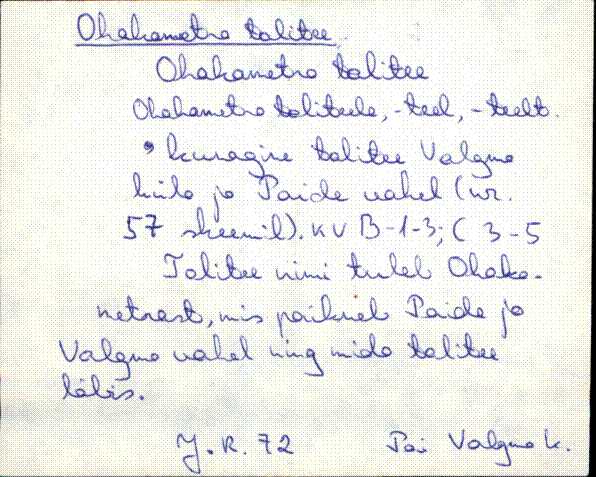 Ohakametsa talitee.
Ohakametsa talitee
Ohakametsa taliteele, -teel, -teelt.
kunagine talitee Valgma
küla ja Paide vahel (nr.
57 skeemil). KV B-1-3; C 3-5
Talitee nimi tuleb Ohaka-
metsast, mis paikneb Paide ja
Valgma vahel ning mida talitee
läbis.
J.R. 72 Pai Valgma k.